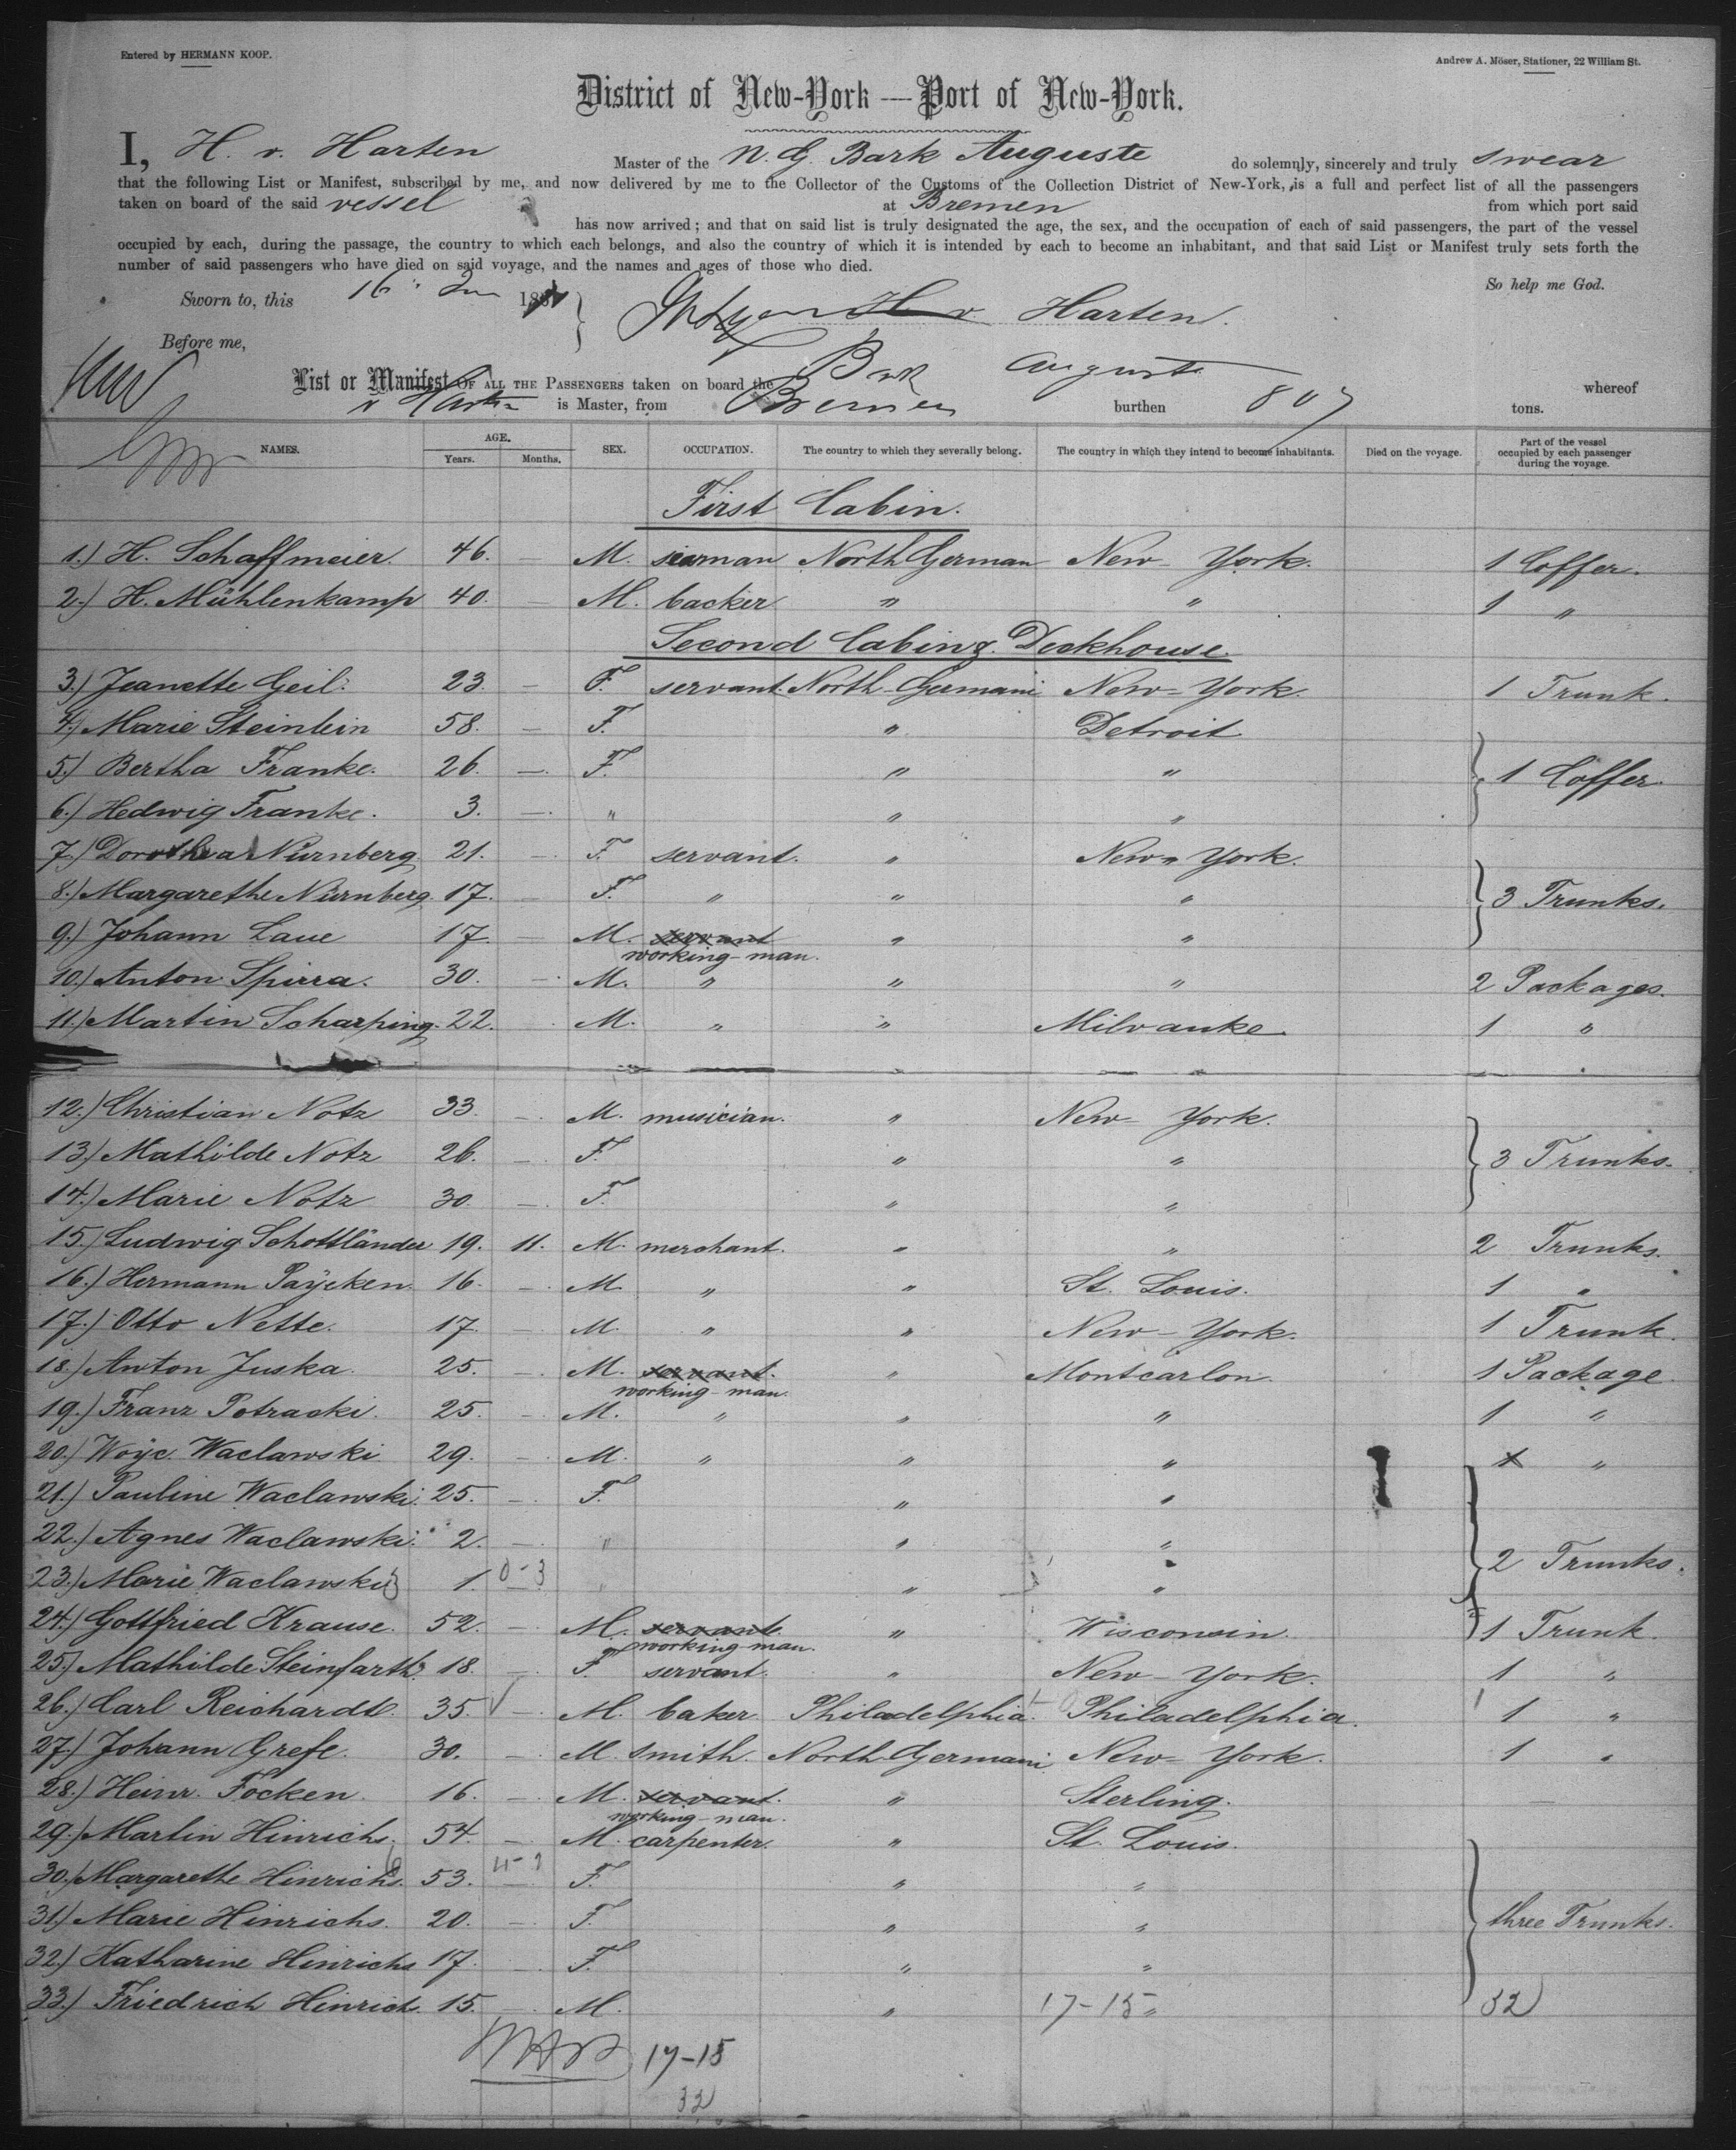 Entered by HERMANN KOOP.
Andrew A. Möser, Stationer, 22 William St.
District of New-York — Port of New-York.
I, H. v. Harten Master of the N. G. Bark Auguste do solemnly, sincerely and truly swear
that the following List or Manifest, subscribed by me, and now delivered by me to the Collector of the Customs of the Collection District of New-York, is a full and perfect list of all the passengers
taken on board of the said vessel at Bremen from which port said
has now arrived; and that on said list is truly designated the age, the sex, and the occupation of each of said passengers, the part of the vessel
occupied by each, during the passage, the country to which each belongs, and also the country of which it is intended by each to become an inhabitant, and that said List or Manifest truly sets forth the
number of said passengers who have died on said voyage, and the names and ages of those who died.
So help me God.
Sworn to, this 16 186
H v Harten.
Before me,
List or Manifest OF ALL THE PASSENGERS taken on board the Bark Auguste whereof
v Harten is Master, from Bremen burthen 807 tons.
NAMES. AGE. Years. Months. SEX. OCCUPATION. The country to which they severally belong. The country in which they intend to become inhabitants. Died on the voyage. Part of the vessel occupied by each passenger during the voyage.
First Cabin.
1.) H. Schaffmeier. 46. — M. seaman North German New-York. 1 Coffer.
2.) H. Mühlenkamp 40. — M. backer " " 1 "
Second Cabin & Deckhouse.
3.) Jeanette Geil. 23. — F. servant. North-Germani New-York. 1 Trunk.
4.) Marie Steinlein 58. — F. " Detroit
5.) Bertha Franke. 26. — F. " " 1 Coffer.
6.) Hedwig Franke. 3. — " " "
7.) Dorothea Nürnberg 21. — F. servant. " New-York.
8.) Margarethe Nürnberg. 17. — F. " " " 3 Trunks.
9.) Johann Laue 17. — M. servant " "
working-man.
10.) Anton Spirra. 30. — M. " " " 2 Packages.
11.) Martin Scharping. 22. — M. " " Milvauke. 1 "
12.) Christian Notz 33. — M. musician. " New-York.
13.) Mathilde Notz 26. — F. " " 3 Trunks.
14.) Marie Notz 30. — F. " "
15.) Ludwig Schottländer 19. 11. M. merchant. " " 2 Trunks.
16.) Hermann Paÿcken. 16. — M. " " St. Louis. 1 "
17.) Otto Nette. 17. — M. " " New-York. 1 Trunk.
18.) Anton Juska. 25. — M. servant. " Montcarlon. 1 Package
working-man.
19.) Franz Potracki. 25. — M. " " " 1 "
20.) Woÿc. Waclawski 29. — M. " " " "
21.) Pauline Waclawski. 25. — F. " "
22.) Agnes Waclawski. 2. — " " "
23.) Marie Waclawski 1. 0-3 " " " 2 Trunks.
24.) Gottfried Krause. 52. — M. servant. " Wisconsin. 1 Trunk.
working-man.
25.) Mathilde Steinfarth. 18. — F. servant. " New-York. 1 "
26.) Carl Reichardt. 35. — M. baker. Philadelphia. Philadelphia. 1 "
27.) Johann Grefe. 30. — M. smith. North-Germani New-York. 1 "
28.) Heinr. Focken. 16. — M. servant. " Sterling.
working-man.
29.) Martin Hinrichs. 54. — M. carpenter. " St. Louis.
30.) Margarethe Hinrichs. 53. — F. " "
31.) Marie Hinrichs. 20. — F. " " three Trunks.
32.) Katharine Hinrichs 17. — F. " "
33.) Friedrich Hinrich. 15. — M. " 17-15 " 32
17-15
32